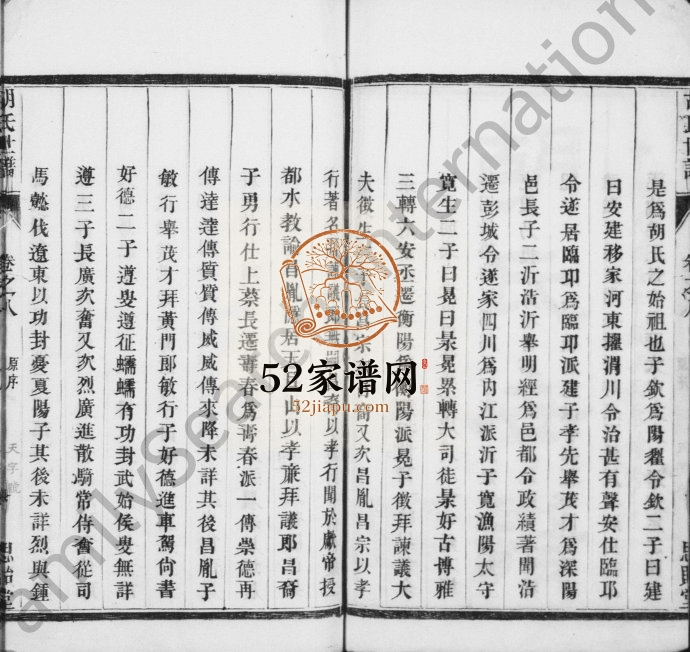 是爲胡氏之始祖也子欽爲陽翟令欽二子曰建
曰安建移家河東擢淯川令治甚有聲安仕臨邛
令遂居臨邛爲臨邛派建子孝先舉茂才爲深陽
邑長子二沂浩沂舉明經爲邑都令政績著聞浩
遷彭城令遂家四川爲内江派沂子寛漁陽太守
寛生二子曰晃曰杲晃累轉大司徒杲好古博雅
三轉六安丞遷衡陽爲衡陽派晃子徵拜諫議大
夫徵生昌宗又次昌胤昌宗以孝
行著名以孝行聞於獻帝授
都水教諭昌胤居山以孝亷拜議郎昌裔
子勇行仕上蔡長遷壽春爲壽春派一傳崇德再
傳達達傳質質傳威威傳來降未詳其後昌胤子
敏行舉茂才拜黄門郎敏行子好德進車駕尙書
好德二子遵叟遵征蠕蠕有功封武始侯叟無詳
遵三子長廣次奮又次烈廣進散騎常侍奮從司
馬懿伐遼東以功封憂夏陽子其後未詳烈與鍾
胡氏世譜
卷之八
原序
天字號
思貽堂
52家谱网
52jiapu.com
FamilySearch International